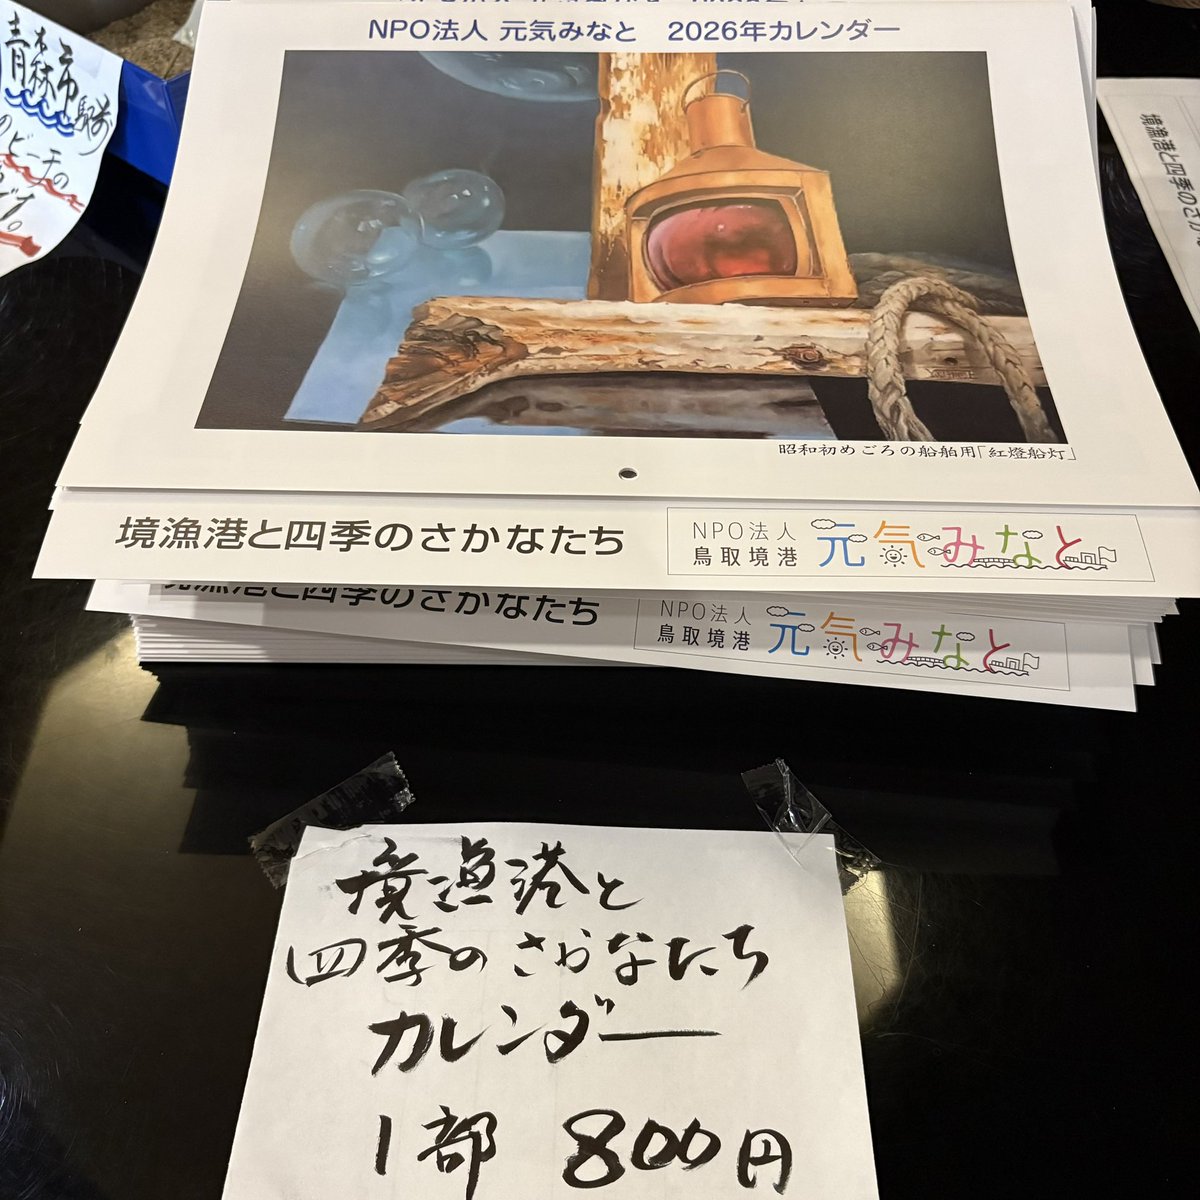 NPO法人 元気みなと　2026年カレンダー
昭和初めごろの船舶用「紅燈船灯」
境漁港と四季のさかなたち
NPO法人
鳥取境港
元気みなと
境漁港と四季のさかなたち
NPO法人
鳥取境港
元気みなと
境漁港と
四季のさかなたち
カレンダー
1部 800円
青森市駅前
のビーチの
境漁港と四季のさか